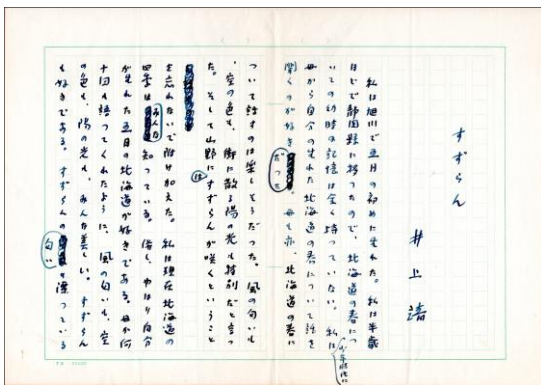 すずらん
井上靖
私は旭川で五月の初めに生れた。私は半歳
ほどで静岡県に移ったので、北海道の春につ
いての幼時の記憶は全く持っていない。私は
少年時代に
母から自分の生れた北海道の春について話を
聞くのが好きだった。母も亦、北海道の春に
ついて話すのは楽しそうだった。風の匂いも
、空の色も、街に散る陽の光も特別だと言っ
た。そして山野にはすずらんが咲くということ
を忘れないで附け加えた。私は現在北海道の
四季はみんな知っている。併し、やはり自分
が生れた五月の北海道が好きである。母が何
十回も語ってくれたように、風の匂いも、空
の色も、陽の光も、みんな美しい。すずらん
も好きである。すずらんの匂いも漂っている